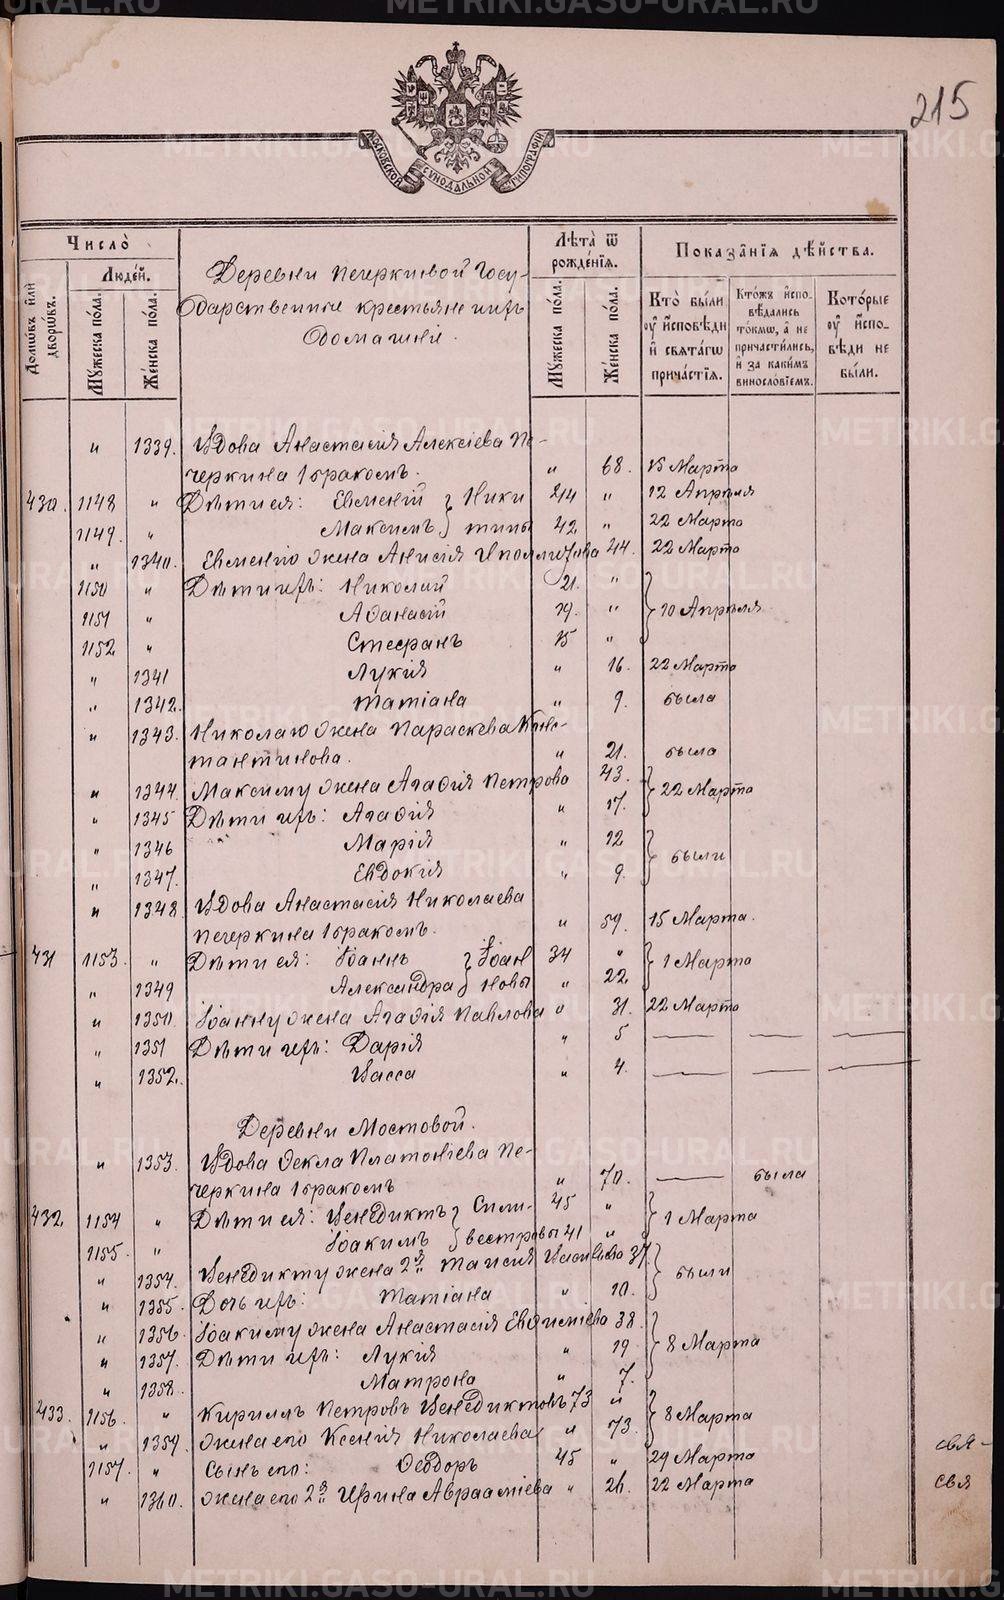 215
МОСКОВСКОЙ СУНОДАЛЬНОЙ ТИПОГРАФІИ
Число̀
Люде́й.
Домѡ́въ и҆лѝ дворѡ́въ.
Мꙋ́жеска по́ла.
Же́нска по́ла.
Деревни Печеркиной Госу-
дарственные крестьяне и ихъ
домашніе.
Лѣ́та ѿ рожде́нїѧ.
Мꙋ́жеска по́ла.
Же́нска по́ла.
Показа̑нїѧ дѣ́йства.
Кто̀ бы́ли ᲂу҆ и҆сповѣ́ди и҆ свѧта́гѡ прича́стїѧ.
Кто́жъ и҆спо-вѣ́дались то́кмѡ, а҆ не причасти́лись, и҆ за каки́мъ винословіемъ.
Кото́рые ᲂу҆ и҆спо-вѣ́ди не бы́ли.
" 1339. Вдова Анастасія Алексіева Пе-
черкина 1 бракомъ. " 68. 15 Марта
430. 1148 " Дѣти ея: Евменій } Ники 44 " 12 Апрѣля
1149. " Максимъ } тины 42 " 22 Марта
" 1340. Евменію жена Анисія Ипполитова 44. 22 Марта
1150 " Дѣти ихъ: Николай 21. "
1151 " Аѳанасій 19. " } 10 Апрѣля
1152 " Стефанъ 15 "
" 1341 Лукія " 16. 22 Марта
" 1342. Татіана " 9. была
" 1343. Николаю жена Параскева Конс-
тантинова. " 21. была
" 1344. Максиму жена Агафія Петрова 43. } 22 Марта
" 1345 Дѣти ихъ: Агафія " 17.
" 1346 Марія " 12 } были
" 1347. Евдокія " 9.
" 1348 Вдова Анастасія Николаева
Печеркина 1 бракомъ. " 59. 15 Марта.
431 1153. " Дѣти ея: Іоаннъ } Іоан 34 " } 1 Марта
" 1349 Александра } новы " 22
" 1350. Іоанну жена Агафія Павлова " 31. 22 Марта
" 1351 Дѣти ихъ: Дарія " 5 — — —
" 1352. Васса " 4. — — —
Деревни Мостовой.
" 1353. Вдова Ѳекла Платоніева Пе-
черкина 1 бракомъ " 70. — была
432 1154 " Дѣти ея: Венедиктъ } Сили- 45 " } 1 Марта
1155. " Іоакимъ } вестровы 41 "
" 1354. Венедикту жена 2я Таисія Васильева 37. } были
" 1355. Дочь ихъ: Татіана " 10.
" 1356. Іоакиму жена Анастасія Евфиміева 38.
" 1357. Дѣти ихъ: Лукія " 19 } 8 Марта
" 1358. Матрона " 7.
433. 1156. " Кириллъ Петровъ Венедиктовъ 73 " } 8 Марта
" 1359. Жена его Ксенія Николаева " 73.
1157. " Сынъ его: Ѳеодоръ 45 " 29 Марта
" 1360. Жена его 2я Ирина Авраамлева " 26. 22 Марта